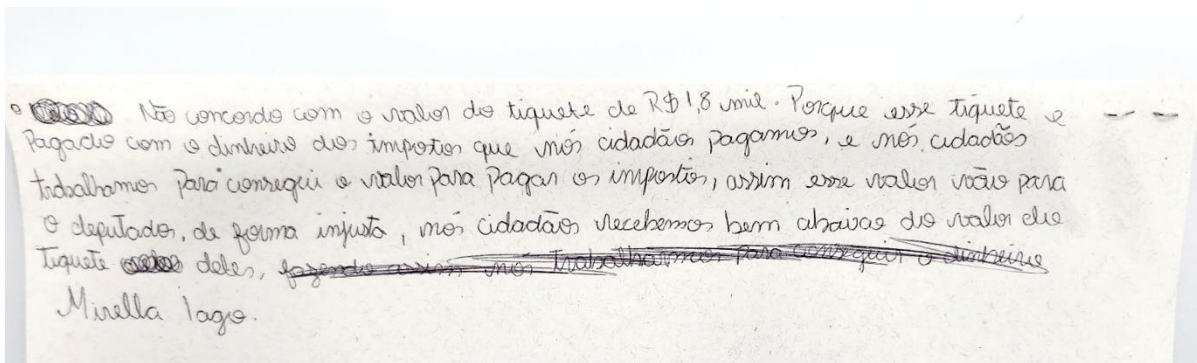 Não concordo com o valor do tiquete de R$ 1,8 mil. Porque esse tiquete e
Pagado com o dinheiro dos impostos que nós cidadãos pagamos, e nós cidadãos
trabalhamos para consegui o valor para Pagar os impostos, assim esse valor vão para
o deputados, de forma injusta, nós cidadãos recebemos bem abaixo do valor de
tiquete deles, fazendo assim nós trabalharmos para conseguir o dinheiro
Mirella Iago.